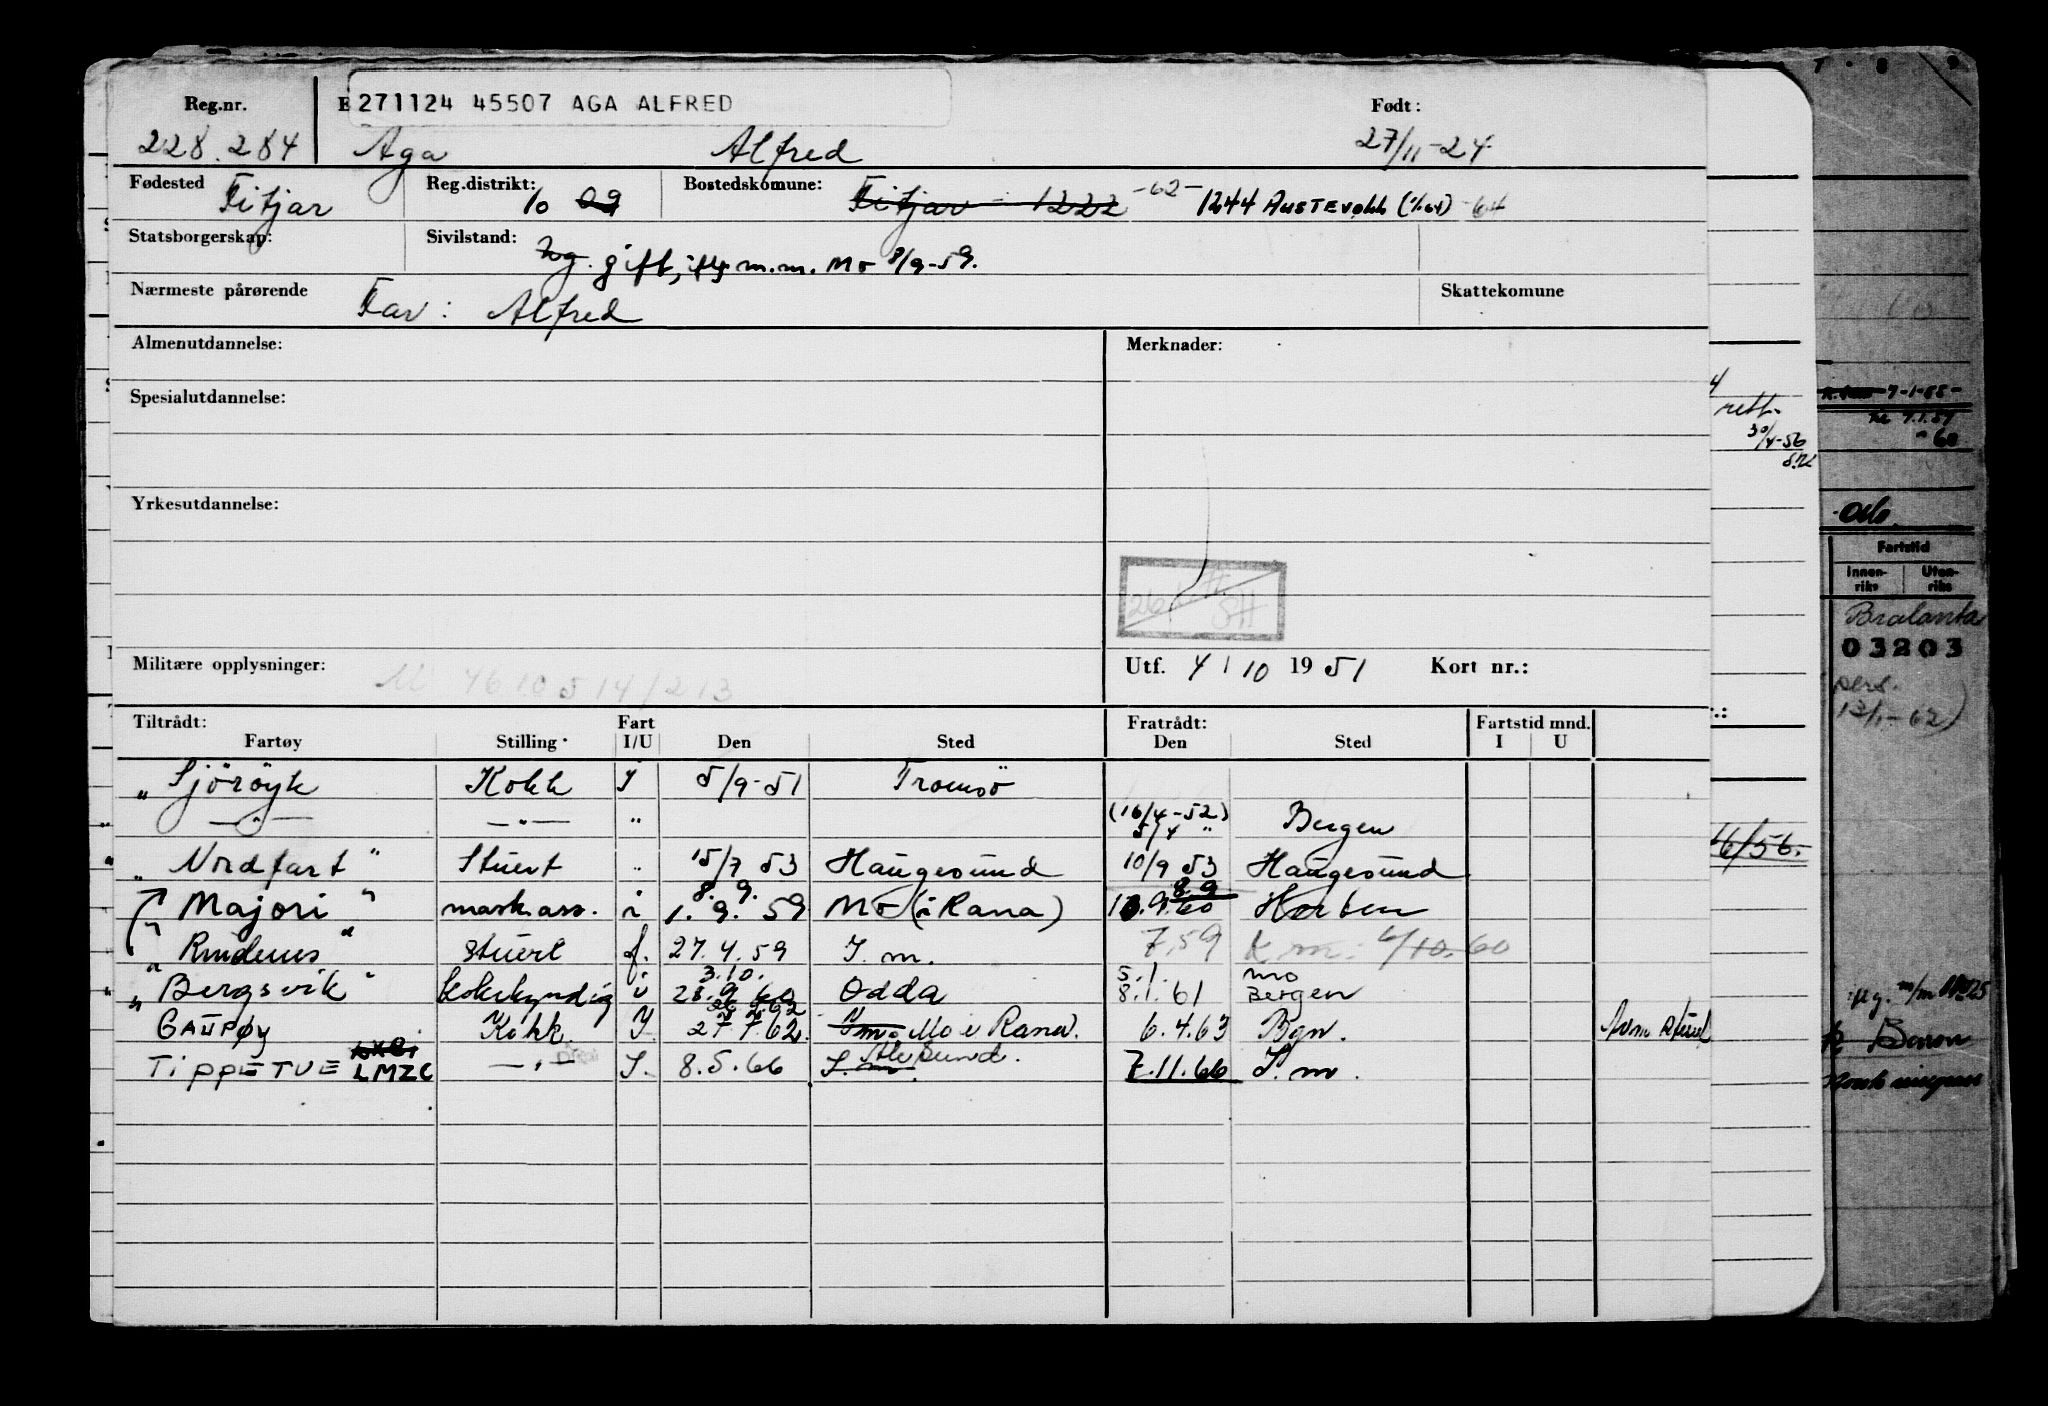 Reg.nr. E 271124 45507 AGA ALFRED Født:
228.284 Aga Alfred 27/11-24
Fødested Fitjar Reg.distrikt: 10 09 Bostedskomune: Fitjar - 1222 -62- 1244 AUSTEVOLL (1/64) -64
Statsborgerskap: Sivilstand: Ug. gift, iflg m.m. Mo 8/9-59.
Nærmeste pårørende Far: Alfred Skattekomune
Almenutdannelse: Merknader:
Spesialutdannelse:
Yrkesutdannelse:
Militære opplysninger: 4610514/213 Utf. 4/10 1951 Kort nr.:
Tiltrådt: Fart Fratrådt: Fartstid mnd.
Fartøy Stilling I/U Den Sted Den Sted I U
" Sjöröyk Kokk I 5/9-51 Tromsö
" —"— —"— " (16/4-52) 5/4 " Bergen
" Nordfart " Stuert " 15/7 53 Haugesund 10/9 53 Haugesund
" Majori " mask.ass. i 8.9. 1.9.59 Mo (i Rana) 8.9 60 Horten
" " stuert f. 27.4.59 I.m. 7.59 6/10.60
" Bergsvik " kokekyndig i 3.10. 28.9.60 Odda 5.1. 8.1.61 mo Bergen
GAUPØY Kokk I. 27.7.62 Mo i Rana. 6.4.63 Bgn.
TIPPETUE LMZC —"— I. 8.5.66 I.m. Ålesund. 7.11.66 I.m.
rett.
30/4-56
6/56.
7-1-55-
7.1.59
" 60
Oslo.
Fartstid
Innen-riks Uten-riks
Bralanta
03203
pens.
13/1-62)
Baron